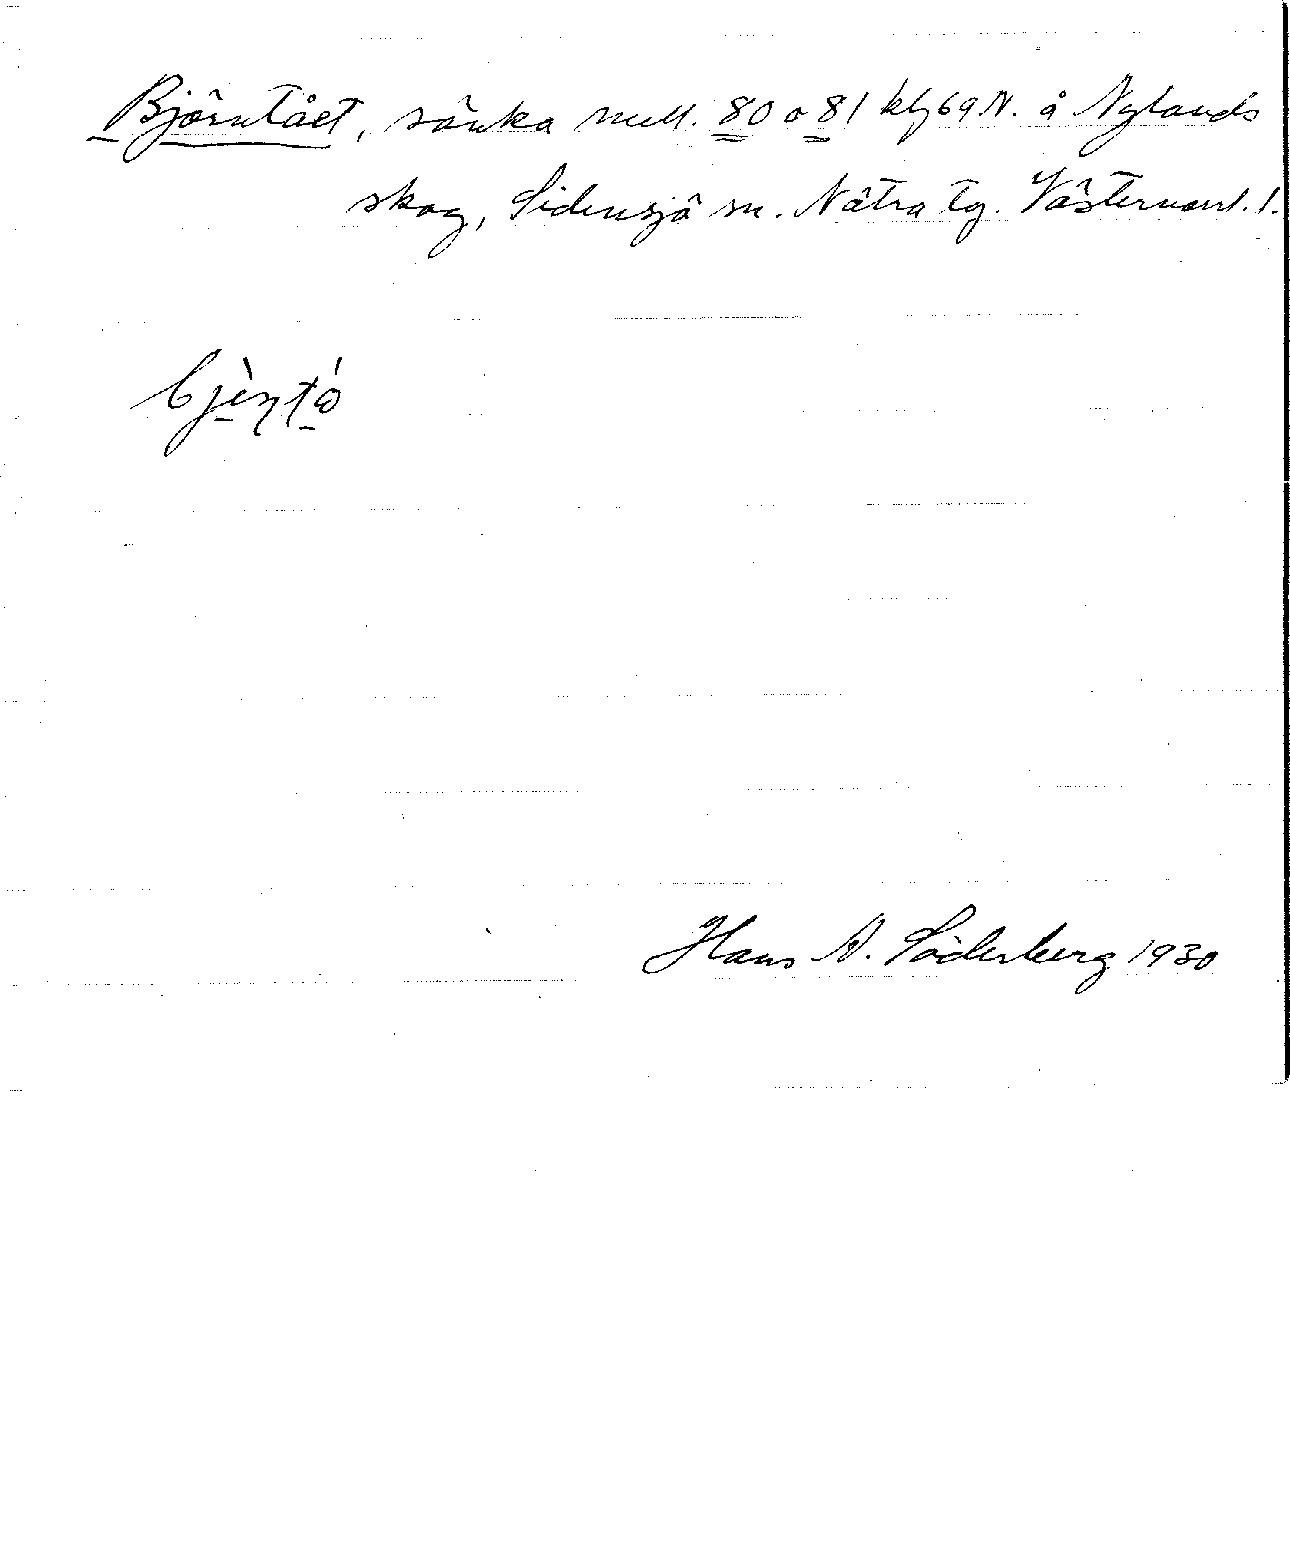 Björntået, sänka mell. 80 o 81 klj 69 N. å Nylands
skog, Sidensjö sn. Nätra tg. Västernorrl. l.
Hans A. Söderberg 1930